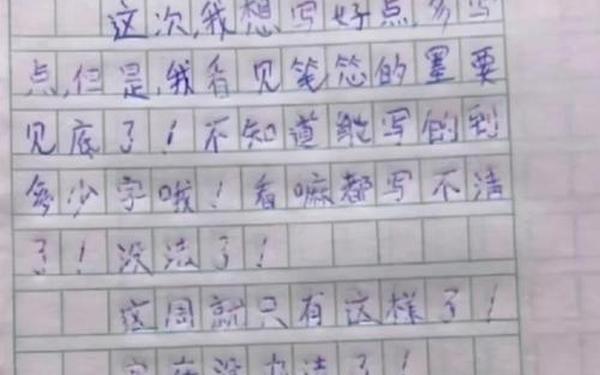 这次,我想写好点,多写
点,但是,我看见笔芯的墨要
见底了!不知道能写的到
多少字哦!看嘛都写不清
了!没法了!
这周就只有这样了!
实在没办法了!